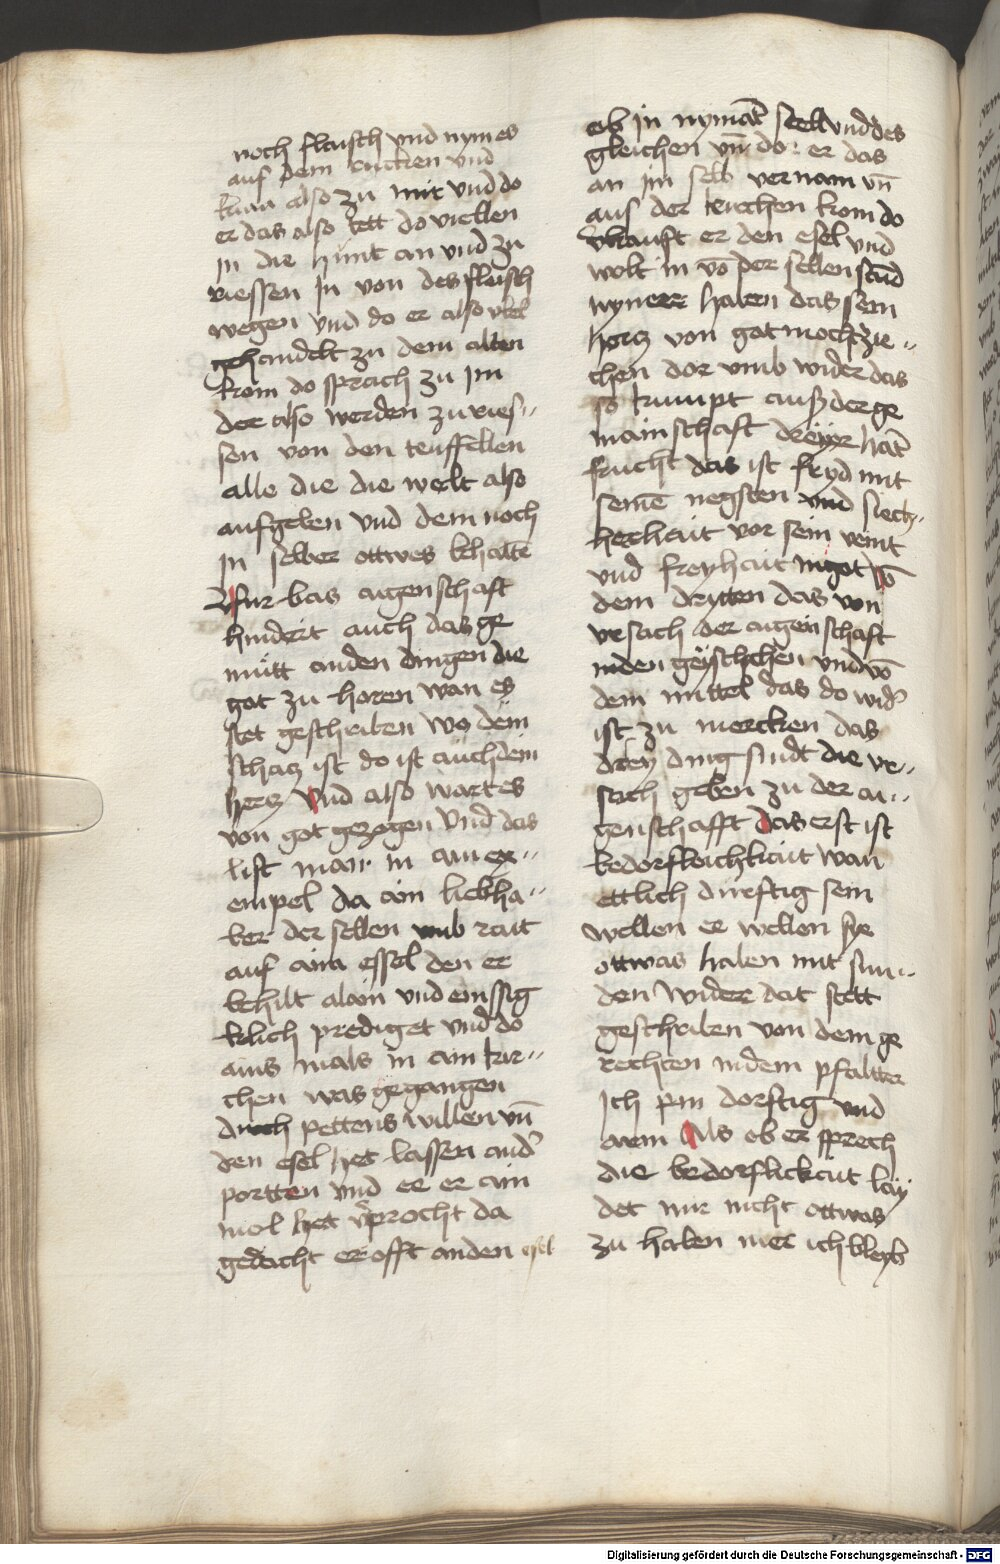 noch flaisch vnd nym es
auf dem rucken vnd
kum also zu mir vnd do
er das also tett do viellen
in die hunt an vnd zu
riessen in von des fleisch
wegen vnd do er also vbel
gehandelt zu dem alten
kom do sprach zu im
der also werden zu ries-
sen von den teuffellen
alle die die welt also
aufgeben vnd dem noch
in selber ettwas behalten
Fur bas aigenschaft
hindert auch das ge
mütt an den dingen die
got zu horen wan es
stet geschriben wo dein
schatz ist do ist auch dein
hertz Vnd also wart es
von got gezogen Vnd das
list man in ain ex-
empel da ain liebha-
ber der sellen vmb rait
auf aim essel den er
behilt alain vnd emssig
klich prediget vnd do
ains mals in ain kir-
chen was gegangen
durch pettens willen vn̄
den esel het lassen an der
portten vnd ee er ain
mol het v̄procht da
gedacht er offt an den esel
ob in nymāt steltt vnd des
gleichen vn̄ do er das
an im selb vernam vn̄
aus der kirchen kom do
v̄kauft er den esel vnd
wolt in vō der sellen stund
nymerr haben das sein
hertz von got mocht zie-
chen dor vmb wider das
so kumpt aus der ge
mainschaft dreyer hāt
frucht das ist fryd mit
seinē negsten vnd siech-
herhait vor sein veint
vnd freyhait in got Vō
dem drytten das von
vrsach der aigenschaft
in den geystlichen vnd vō
dem mittel das do wid̄
ist zu mercken das
drey ding sindt die vr-
sach geben zu der ai-
genschafft Das erst ist
bedorfleichkait wan
ettlich durftig sein
wellen er wellen sye
ettwas haben mit sun-
den wider dat stett
geschriben von dem ge
rechten in dem psaltter
Ich pin dorftig vnd
arm Als ob er sprech
die bedorflickait lay
det mir nicht ettwas
zu haben mer ich bleyb
Digitalisierung gefördert durch die Deutsche Forschungsgemeinschaft - DFG